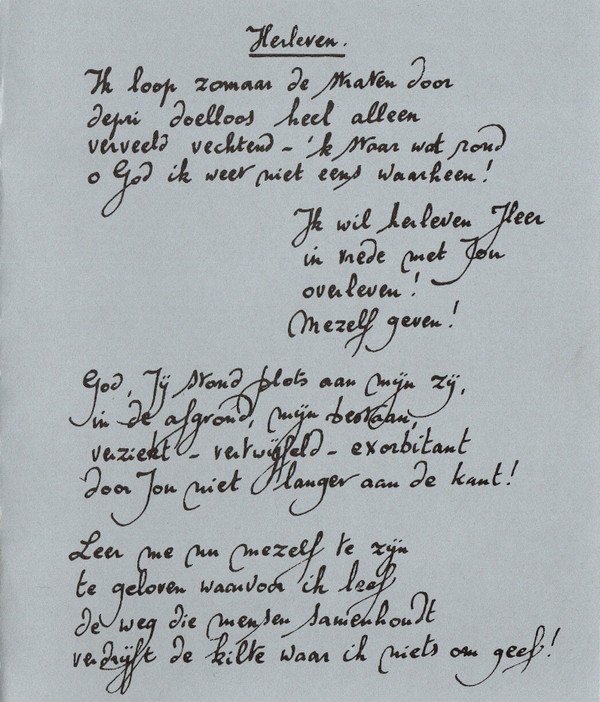 Herleven.
Ik loop zomaar de straten door
depri doelloos heel alleen
verveeld vechtend - 'k staar wat rond
o God ik weet niet eens waarheen!
Ik wil herleven Heer
in vrede met Jou
overleven!
Mezelf geven!
God, Jij stond plots aan mijn zij,
in de afgrond, mijn bestaan,
verziekt - vertwijfeld - exorbitant
door Jou niet langer aan de kant!
Leer me nu mezelf te zijn
te geloven waarvoor ik leef
de weg die mensen samenhoudt
verdrijft de kilte waar ik niets om geef!